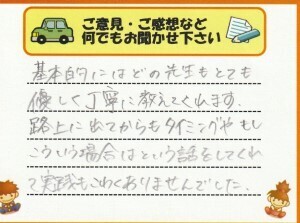 ご意見・ご感想など
何でもお聞かせ下さい
基本的にはどの先生もとても
優しく丁寧に教えてくれます。
路上に出てからもタイミングやもし
こういう場合はという話をしてくれ
て実践もこわくありませんでした。